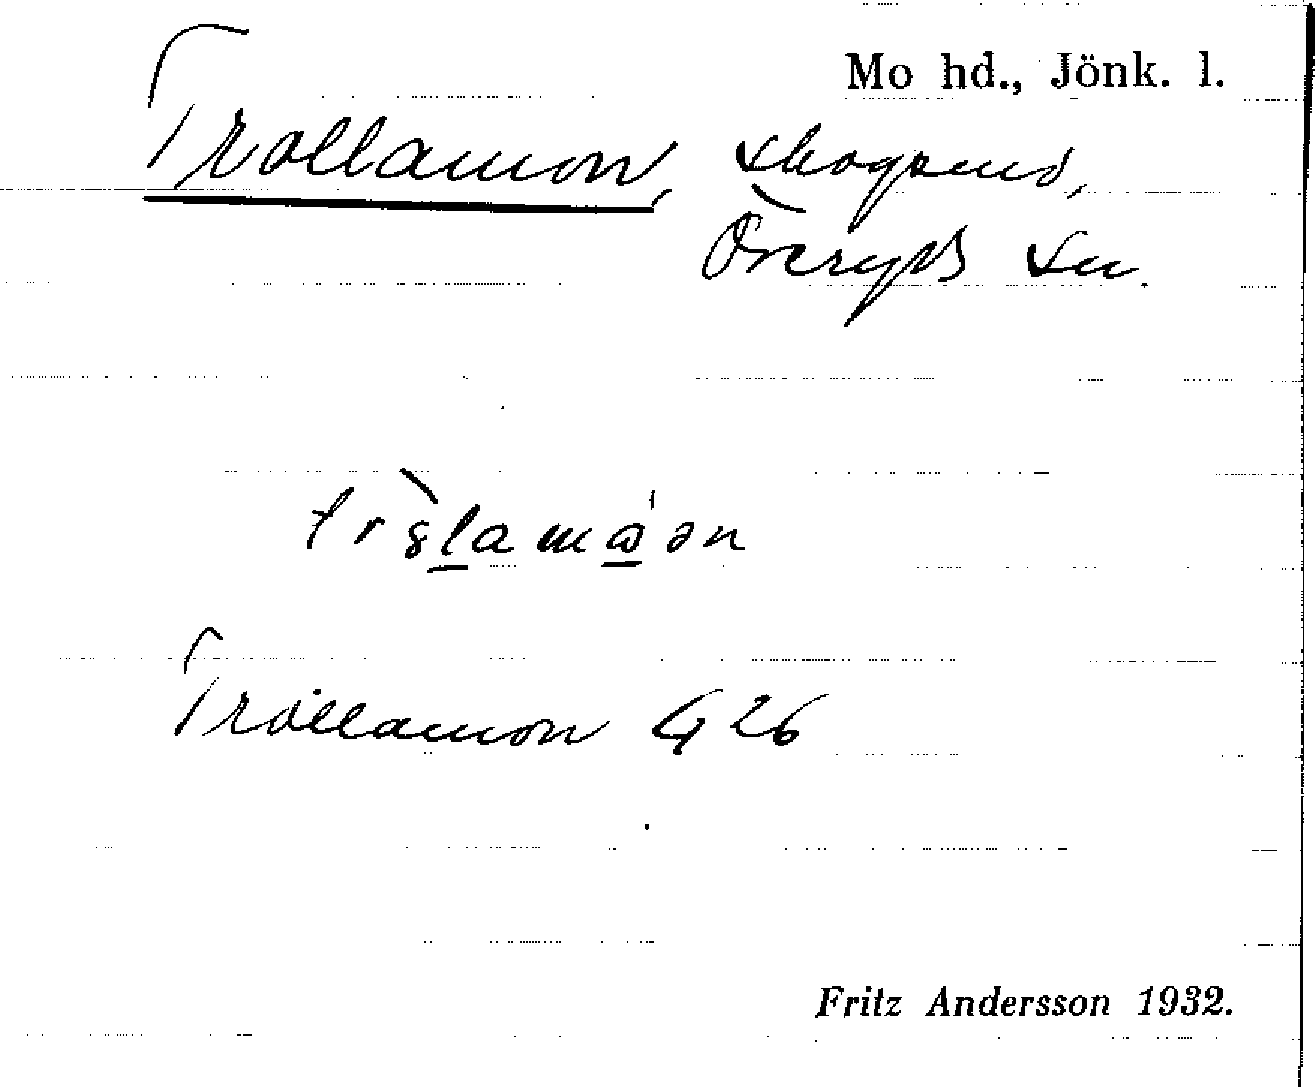 Mo hd., Jönk. l.
Trollamon, skogsmd,
Öreryds sn.
Trollamon G 26
Fritz Andersson 1932.